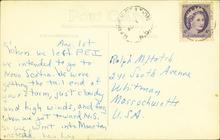 Post Card
Aug 1st
When we left P.E.I
we intended to go to
Nova Scotia. We were
getting the tail end of
a storm, just cloudy
and high winds, and
when we got toward N.S.
so we went into
instead,
Ralph M. Hatch
241 South Avenue
Whitman
Massachusetts
U.S.A.